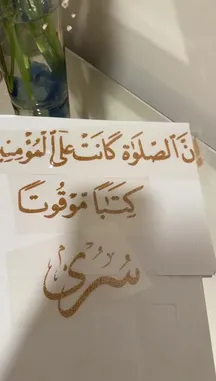 إِنَّ ٱلصَّلَوٰةَ كَانَتْ عَلَى ٱلْمُؤْمِنِينَ
كِتَـٰبًا مَّوْقُوتًا
سُرى